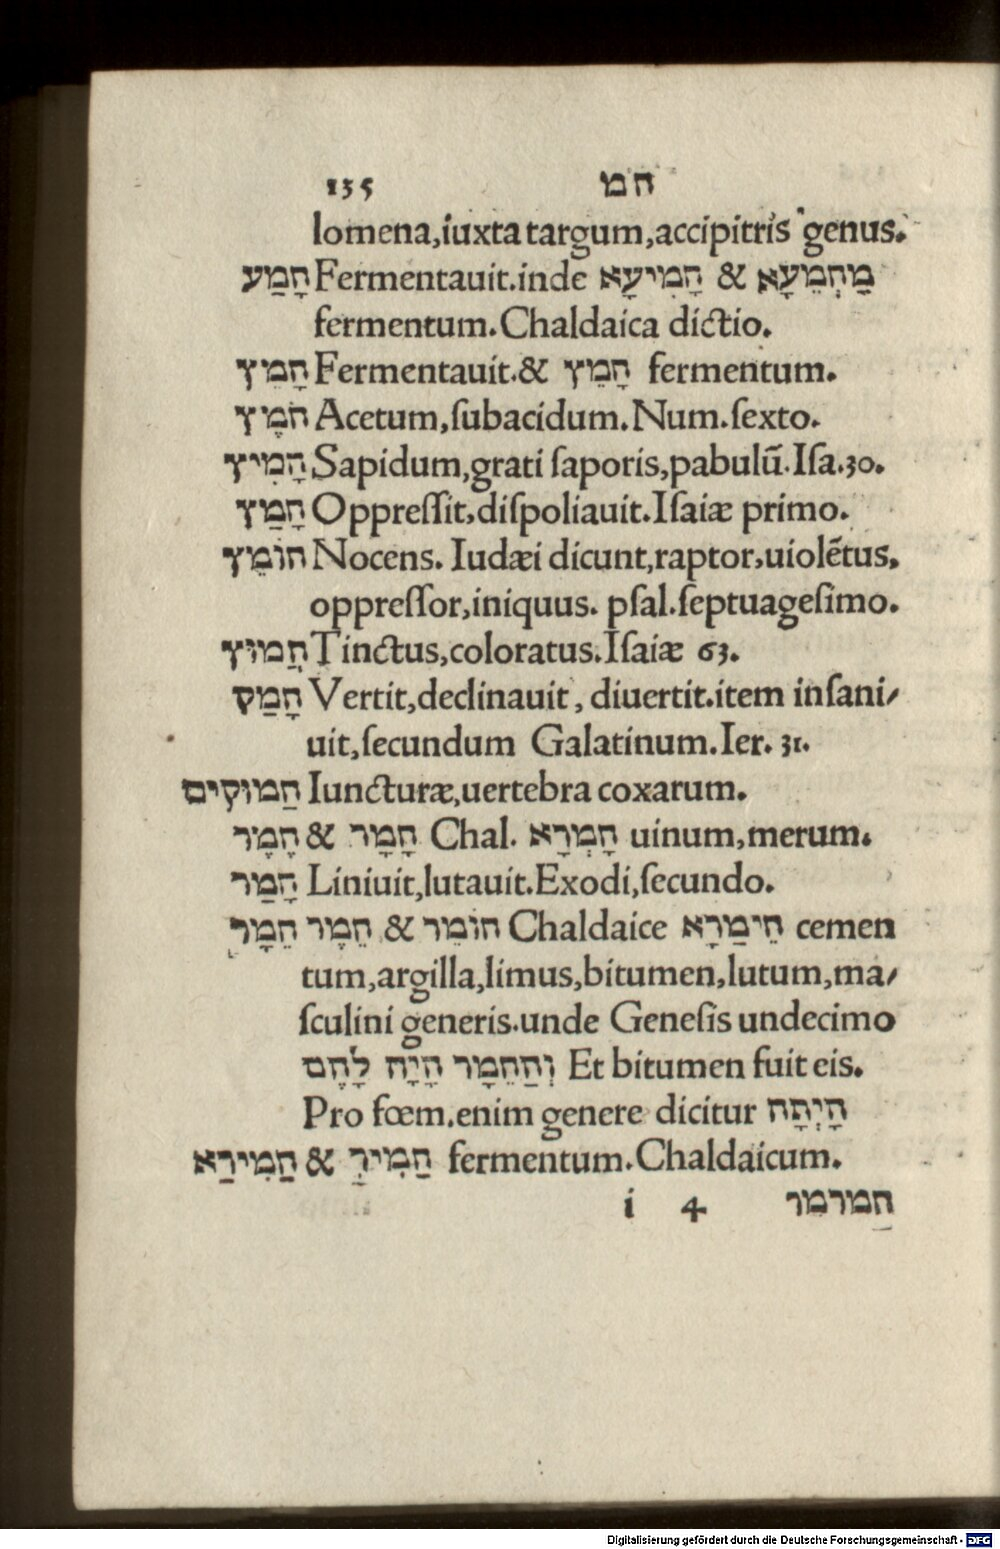 135 חמ
lomena,iuxta targum,accipitris genus.
חָמַע Fermentauit.inde חָמִיעָא & מַחְמֵעָא
fermentum.Chaldaica dictio.
חָמֵץ Fermentauit.& חָמֵץ fermentum.
חֹמֶץ Acetum,ſubacidum.Num.ſexto.
חָמִיץ Sapidum,grati ſaporis,pabulū.Iſa.30.
חָמַץ Oppreſſit,diſpoliauit.Iſaiæ primo.
חוֹמֵץ Nocens. Iudæi dicunt,raptor,uiolētus,
oppreſſor,iniquus. pſal.ſeptuageſimo.
חֲמוּץ Tinctus,coloratus.Iſaiæ 63.
חָמַק Vertit,declinauit, diuertit.item inſani/
uit,ſecundum Galatinum.Ier. 31.
חַמוּקִים Iuncturæ,uertebra coxarum.
חֶמֶר & חָמָר Chal. חָמְרָא uinum,merum.
חָמַר Liniuit,lutauit.Exodi,ſecundo.
חֵמָר חֵמֶר & חוֹמֵר Chaldaice חֵימַרָא cemen
tum,argilla,limus,bitumen,lutum,ma/
ſculini generis.unde Geneſis undecimo
וְהַחֵמָר הָיָה לָהֶם Et bitumen fuit eis.
Pro fœm.enim genere dicitur הָיְתָה
חַמִירַא & חַמִיר fermentum.Chaldaicum.
i 4 חַמרמִר
Digitalisierung gefördert durch die Deutsche Forschungsgemeinschaft - DFG